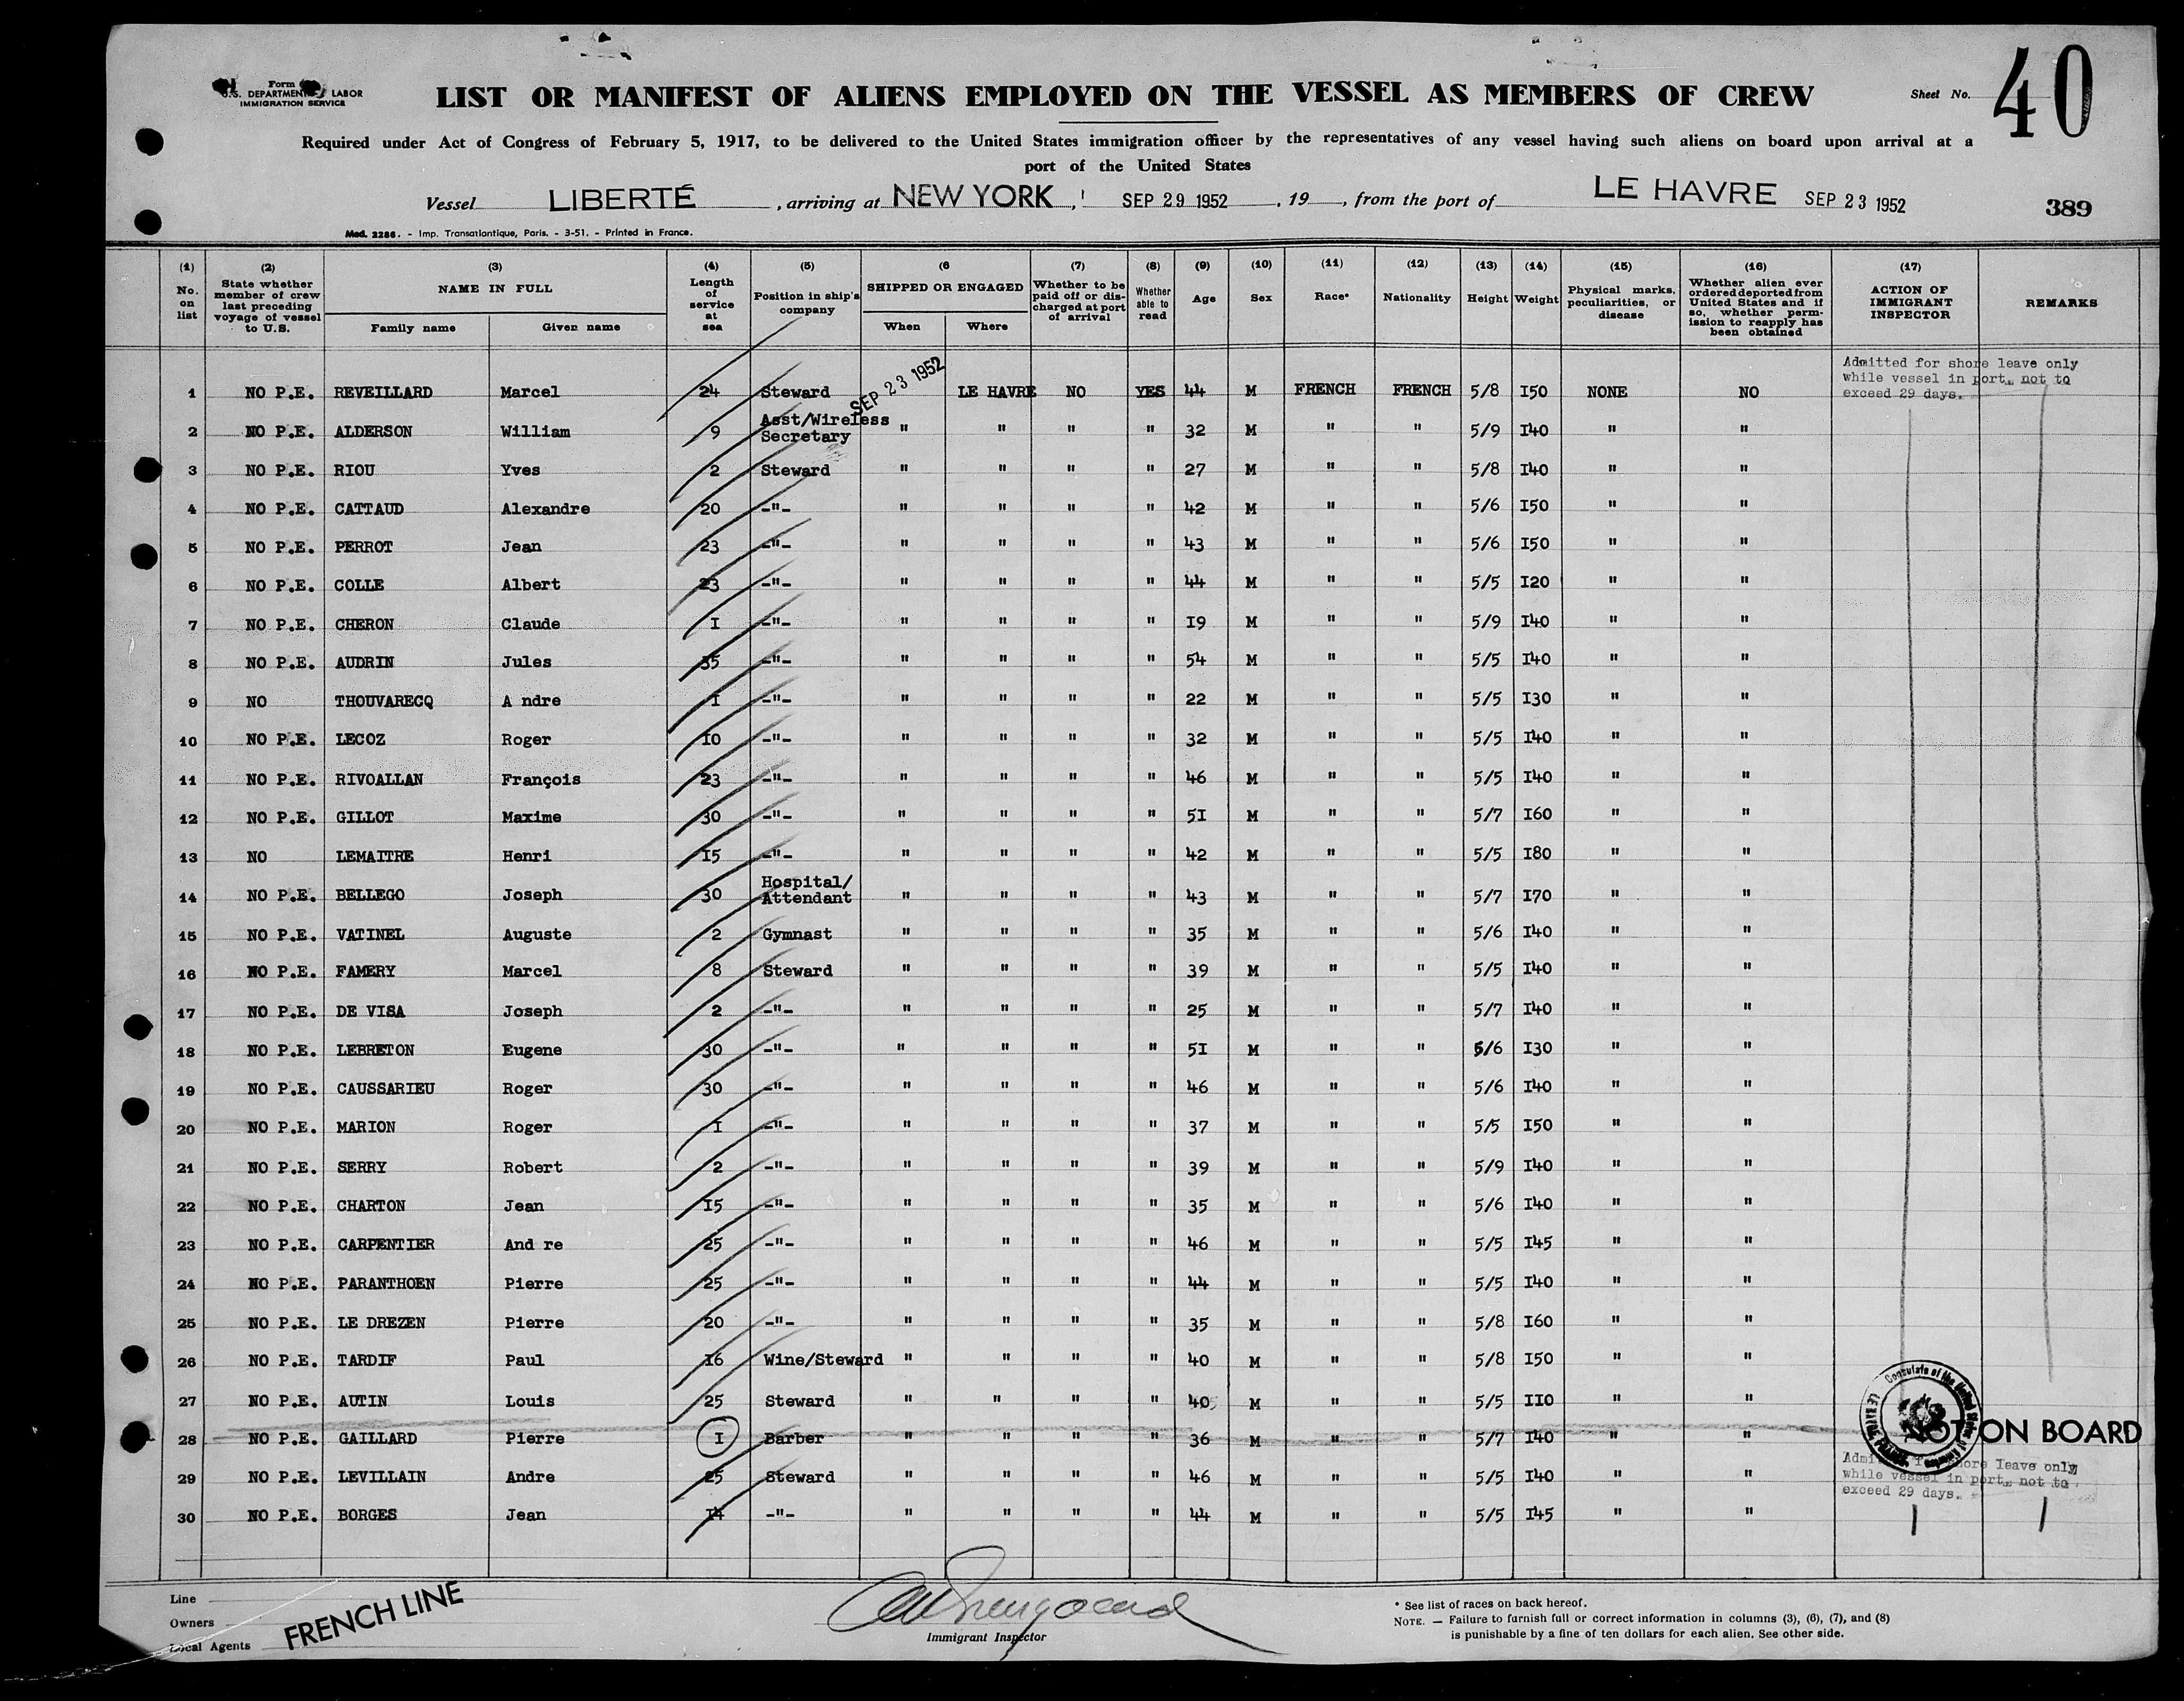 Form
U.S. DEPARTMENT LABOR
IMMIGRATION SERVICE
LIST OR MANIFEST OF ALIENS EMPLOYED ON THE VESSEL AS MEMBERS OF CREW
Sheet No. 40
Required under Act of Congress of February 5, 1917, to be delivered to the United States immigration officer by the representatives of any vessel having such aliens on board upon arrival at a
port of the United States
Vessel LIBERTÉ , arriving at NEW YORK , SEP 29 1952 , 19 , from the port of LE HAVRE SEP 23 1952
389
Mod. 2286. - Imp. Transatlantique, Paris. - 3-51. - Printed in France.
(1) No. on list
(2) State whether member of crew last preceding voyage of vessel to U.S.
(3) NAME IN FULL
Family name Given name
(4) Length of service at sea
(5) Position in ship's company
(6 SHIPPED OR ENGAGED
When Where
(7) Whether to be paid off or discharged at port of arrival
(8) Whether able to read
(9) Age
(10) Sex
(11) Race*
(12) Nationality
(13) Height
(14) Weight
(15) Physical marks, peculiarities, or disease
(16) Whether alien ever ordered deported from United States and if so, whether permission to reapply has been obtained
(17) ACTION OF IMMIGRANT INSPECTOR
REMARKS
Admitted for shore leave only
while vessel in port, not to
exceed 29 days.
1 NO P.E. REVEILLARD Marcel 24 Steward SEP 23 1952 LE HAVRE NO YES 44 M FRENCH FRENCH 5/8 I50 NONE NO
2 NO P.E. ALDERSON William 9 Asst/Wireless Secretary " " " " 32 M " " 5/9 I40 " "
3 NO P.E. RIOU Yves 2 Steward " " " " 27 M " " 5/8 I40 " "
4 NO P.E. CATTAUD Alexandre 20 -"- " " " " 42 M " " 5/6 I50 " "
5 NO P.E. PERROT Jean 23 -"- " " " " 43 M " " 5/6 I50 " "
6 NO P.E. COLLE Albert 23 -"- " " " " 44 M " " 5/5 I20 " "
7 NO P.E. CHERON Claude I -"- " " " " I9 M " " 5/9 I40 " "
8 NO P.E. AUDRIN Jules 35 -"- " " " " 54 M " " 5/5 I40 " "
9 NO THOUVARECQ A ndre I -"- " " " " 22 M " " 5/5 I30 " "
10 NO P.E. LECOZ Roger I0 -"- " " " " 32 M " " 5/5 I40 " "
11 NO P.E. RIVOALLAN François 23 -"- " " " " 46 M " " 5/5 I40 " "
12 NO P.E. GILLOT Maxime 30 -"- " " " " 5I M " " 5/7 I60 " "
13 NO LEMAITRE Henri I5 -"- " " " " 42 M " " 5/5 I80 " "
14 NO P.E. BELLEGO Joseph 30 Hospital/ Attendant " " " " 43 M " " 5/7 I70 " "
15 NO P.E. VATINEL Auguste 2 Gymnast " " " " 35 M " " 5/6 I40 " "
16 NO P.E. FAMERY Marcel 8 Steward " " " " 39 M " " 5/5 I40 " "
17 NO P.E. DE VISA Joseph 2 -"- " " " " 25 M " " 5/7 I40 " "
18 NO P.E. LEBRETON Eugene 30 -"- " " " " 5I M " " 5/6 I30 " "
19 NO P.E. CAUSSARIEU Roger 30 -"- " " " " 46 M " " 5/6 I40 " "
20 NO P.E. MARION Roger I -"- " " " " 37 M " " 5/5 I50 " "
21 NO P.E. SERRY Robert 2 -"- " " " " 39 M " " 5/9 I40 " "
22 NO P.E. CHARTON Jean I5 -"- " " " " 35 M " " 5/6 I40 " "
23 NO P.E. CARPENTIER And re 25 -"- " " " " 46 M " " 5/5 I45 " "
24 NO P.E. PARANTHOEN Pierre 25 -"- " " " " 44 M " " 5/5 I40 " "
25 NO P.E. LE DREZEN Pierre 20 -"- " " " " 35 M " " 5/8 I60 " "
26 NO P.E. TARDIF Paul I6 Wine/Steward " " " " 40 M " " 5/8 I50 " "
27 NO P.E. AUTIN Louis 25 Steward " " " " 40 M " " 5/5 II0 " "
28 NO P.E. GAILLARD Pierre I Barber " " " " 36 M " " 5/7 I40 " " NOT ON BOARD
29 NO P.E. LEVILLAIN Andre 25 Steward " " " " 46 M " " 5/5 I40 " "
30 NO P.E. BORGES Jean I4 -"- " " " " 44 M " " 5/5 I45 " "
Consulate of the United States of America
LE HAVRE, FRANCE
Admitted for shore leave only
while vessel in port, not to
exceed 29 days.
Line
Owners
Local Agents
FRENCH LINE
Immigrant Inspector
* See list of races on back hereof.
NOTE. — Failure to furnish full or correct information in columns (3), (6), (7), and (8)
is punishable by a fine of ten dollars for each alien. See other side.